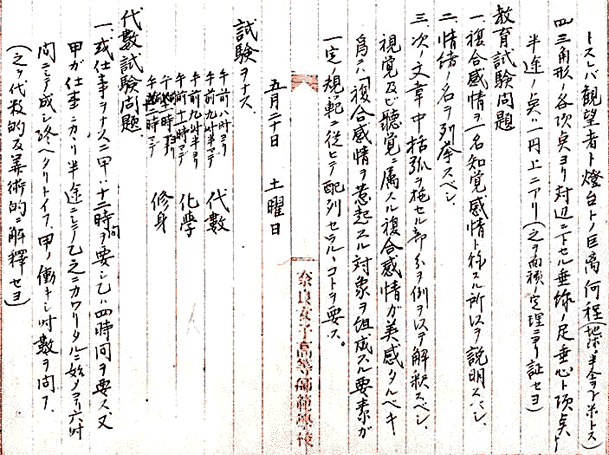 トスレバ観望者ト燈台トノ距離何程(地球ノ半径ヲrトス)
四、三角形ノ各頂点ヨリ対辺ニ下セル垂線ノ足垂心ト頂点ノ
半途ノ点ハ一円上ニアリ(之ヲ面積ノ定理ニヨリ証セヨ)
教育試験問題
一、複合感情ヲ一名知覚感情ト称スル所以ヲ説明スベシ
二、情緒ノ名ヲ列挙スベシ
三、次ノ文章中括弧ヲ施セル部分ヲ例ヲ以テ解釈スベシ
視覚及ビ聴覚ニ属スル複合感情ガ美感タルベキ
為ニハ「複合感情ヲ惹起スル対象ヲ組成スル要素ガ
一定ノ規範ニ従ヒテ配列セラルヽコトヲ要ス」
奈良女子高等師範學校
五月二十日 土曜日
試験ヲナス
午前八時ヨリ
午前九時半マデ 代數
午前九時半ヨリ
午前十一時マデ 化學
修身
代數試験問題
一、或仕事ヲナスニ甲ハ十二時間ヲ要シ乙ハ四時間ヲ要ス又
甲ガ仕事ニカヽリ半途ニシテ乙之ニカワリタルニ始メヨリ六時
間ニテ成シ終ヘタリトイフ甲ノ働キシ時數ヲ問フ
(之ヲ代数的及算術的ニ解釋セヨ)